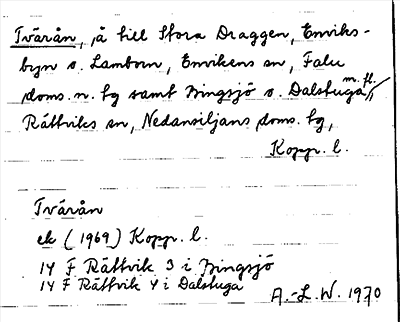 Tvärån, å till Stora Draggen, Enviks-
byn o. Lamborn, Envikens sn, Falu
doms. n. tg samt Bingsjö o. Dalstuga m. fl.,
Rättviks sn, Nedansiljans doms. tg,
Koppr. l.
Tvärån
ek (1969) Koppr. l.
14 F Rättvik 3 i Bingsjö
14 F Rättvik 4 i Dalstuga
A.-L. W. 1970